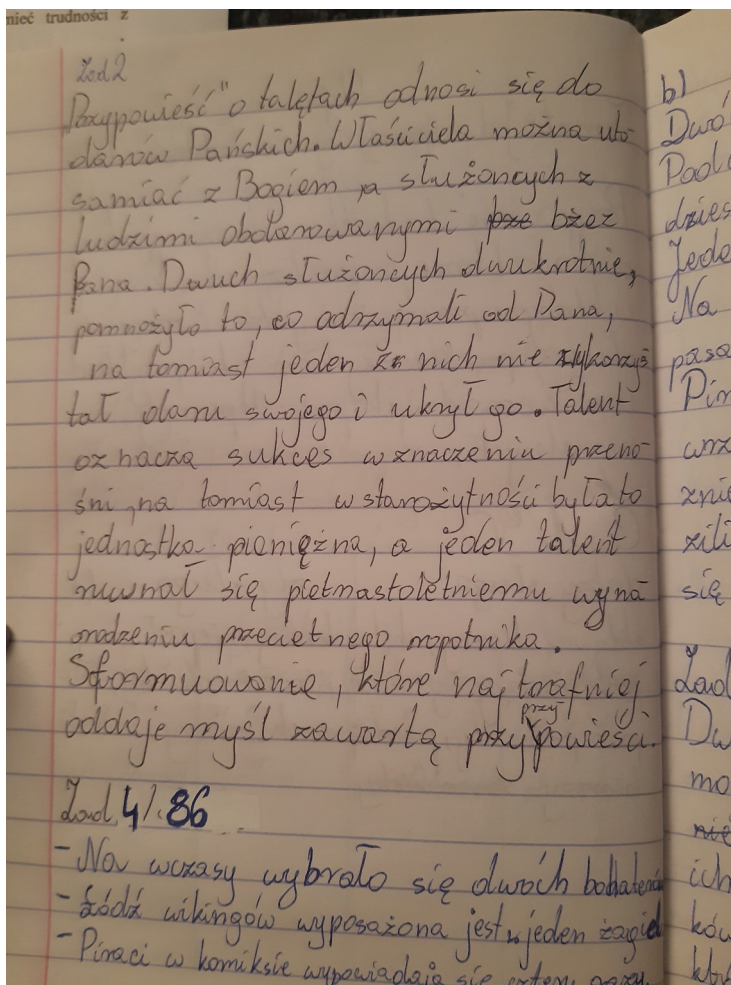 mieć trudności z
Zad 2
Przypowieść" o talętach odnosi się do
darów Pańskich. Właściciela można uto-
samiać z Bogiem, a służoncych z
ludzimi obdarowanymi bżez
Pana. Dwuch służoncych dwukrotnie,
pomnożyło to, co odrzymali od Pana,
na tomiast jeden z nich nie wykorzys
tał daru swojego i ukrył go. Talent
oznacza sukces w znaczeniu przeno-
śni, na tomiast w starożytności była to
jednostka pieniężna, a jeden talent
ruwnał się pietnastoletniemu wyna-
grodzeniu przecietnego ropotnika.
Sformuowanie, które najtrafniej
oddaje myśl zawartą przy przypowieści.
Zad 4/s. 86
- Na wczasy wybrało się dwóch bohaterów
- Łódź wikingów wyposażona jest w jeden żagiel
- Piraci w komiksie wypowiadają się cztery razy.
b)
Dwó
dzies
Jede
Na
pasa
się
Zad
Dw
mo
nie
ich
ków